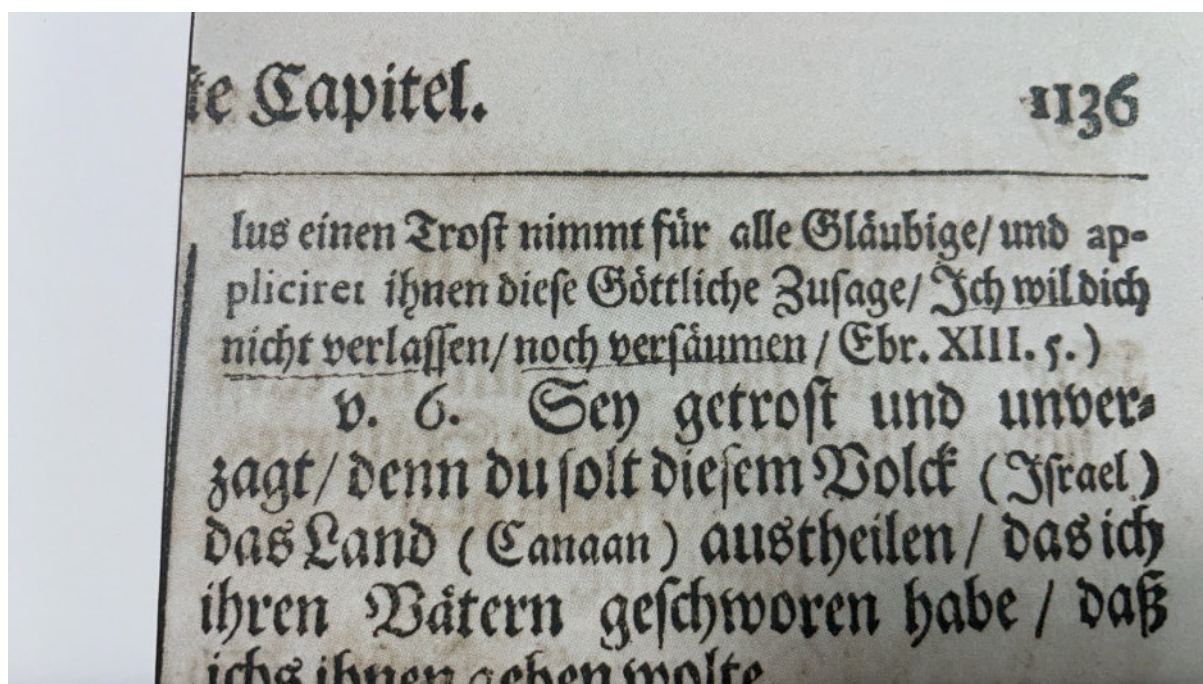 te Capitel. 1136
lus einen Trost nimmt für alle Gläubige/ und ap-
pliciret ihnen diese Göttliche Zusage/ Ich wil dich
nicht verlassen/ noch versäumen / Ebr. XIII. 5.)
v. 6. Sey getrost und unver-
zagt/ denn du solt diesem Volck (Israel)
das Land (Canaan) austheilen/ das ich
ihren Vätern geschworen habe / daß
ichs ihnen geben wolte